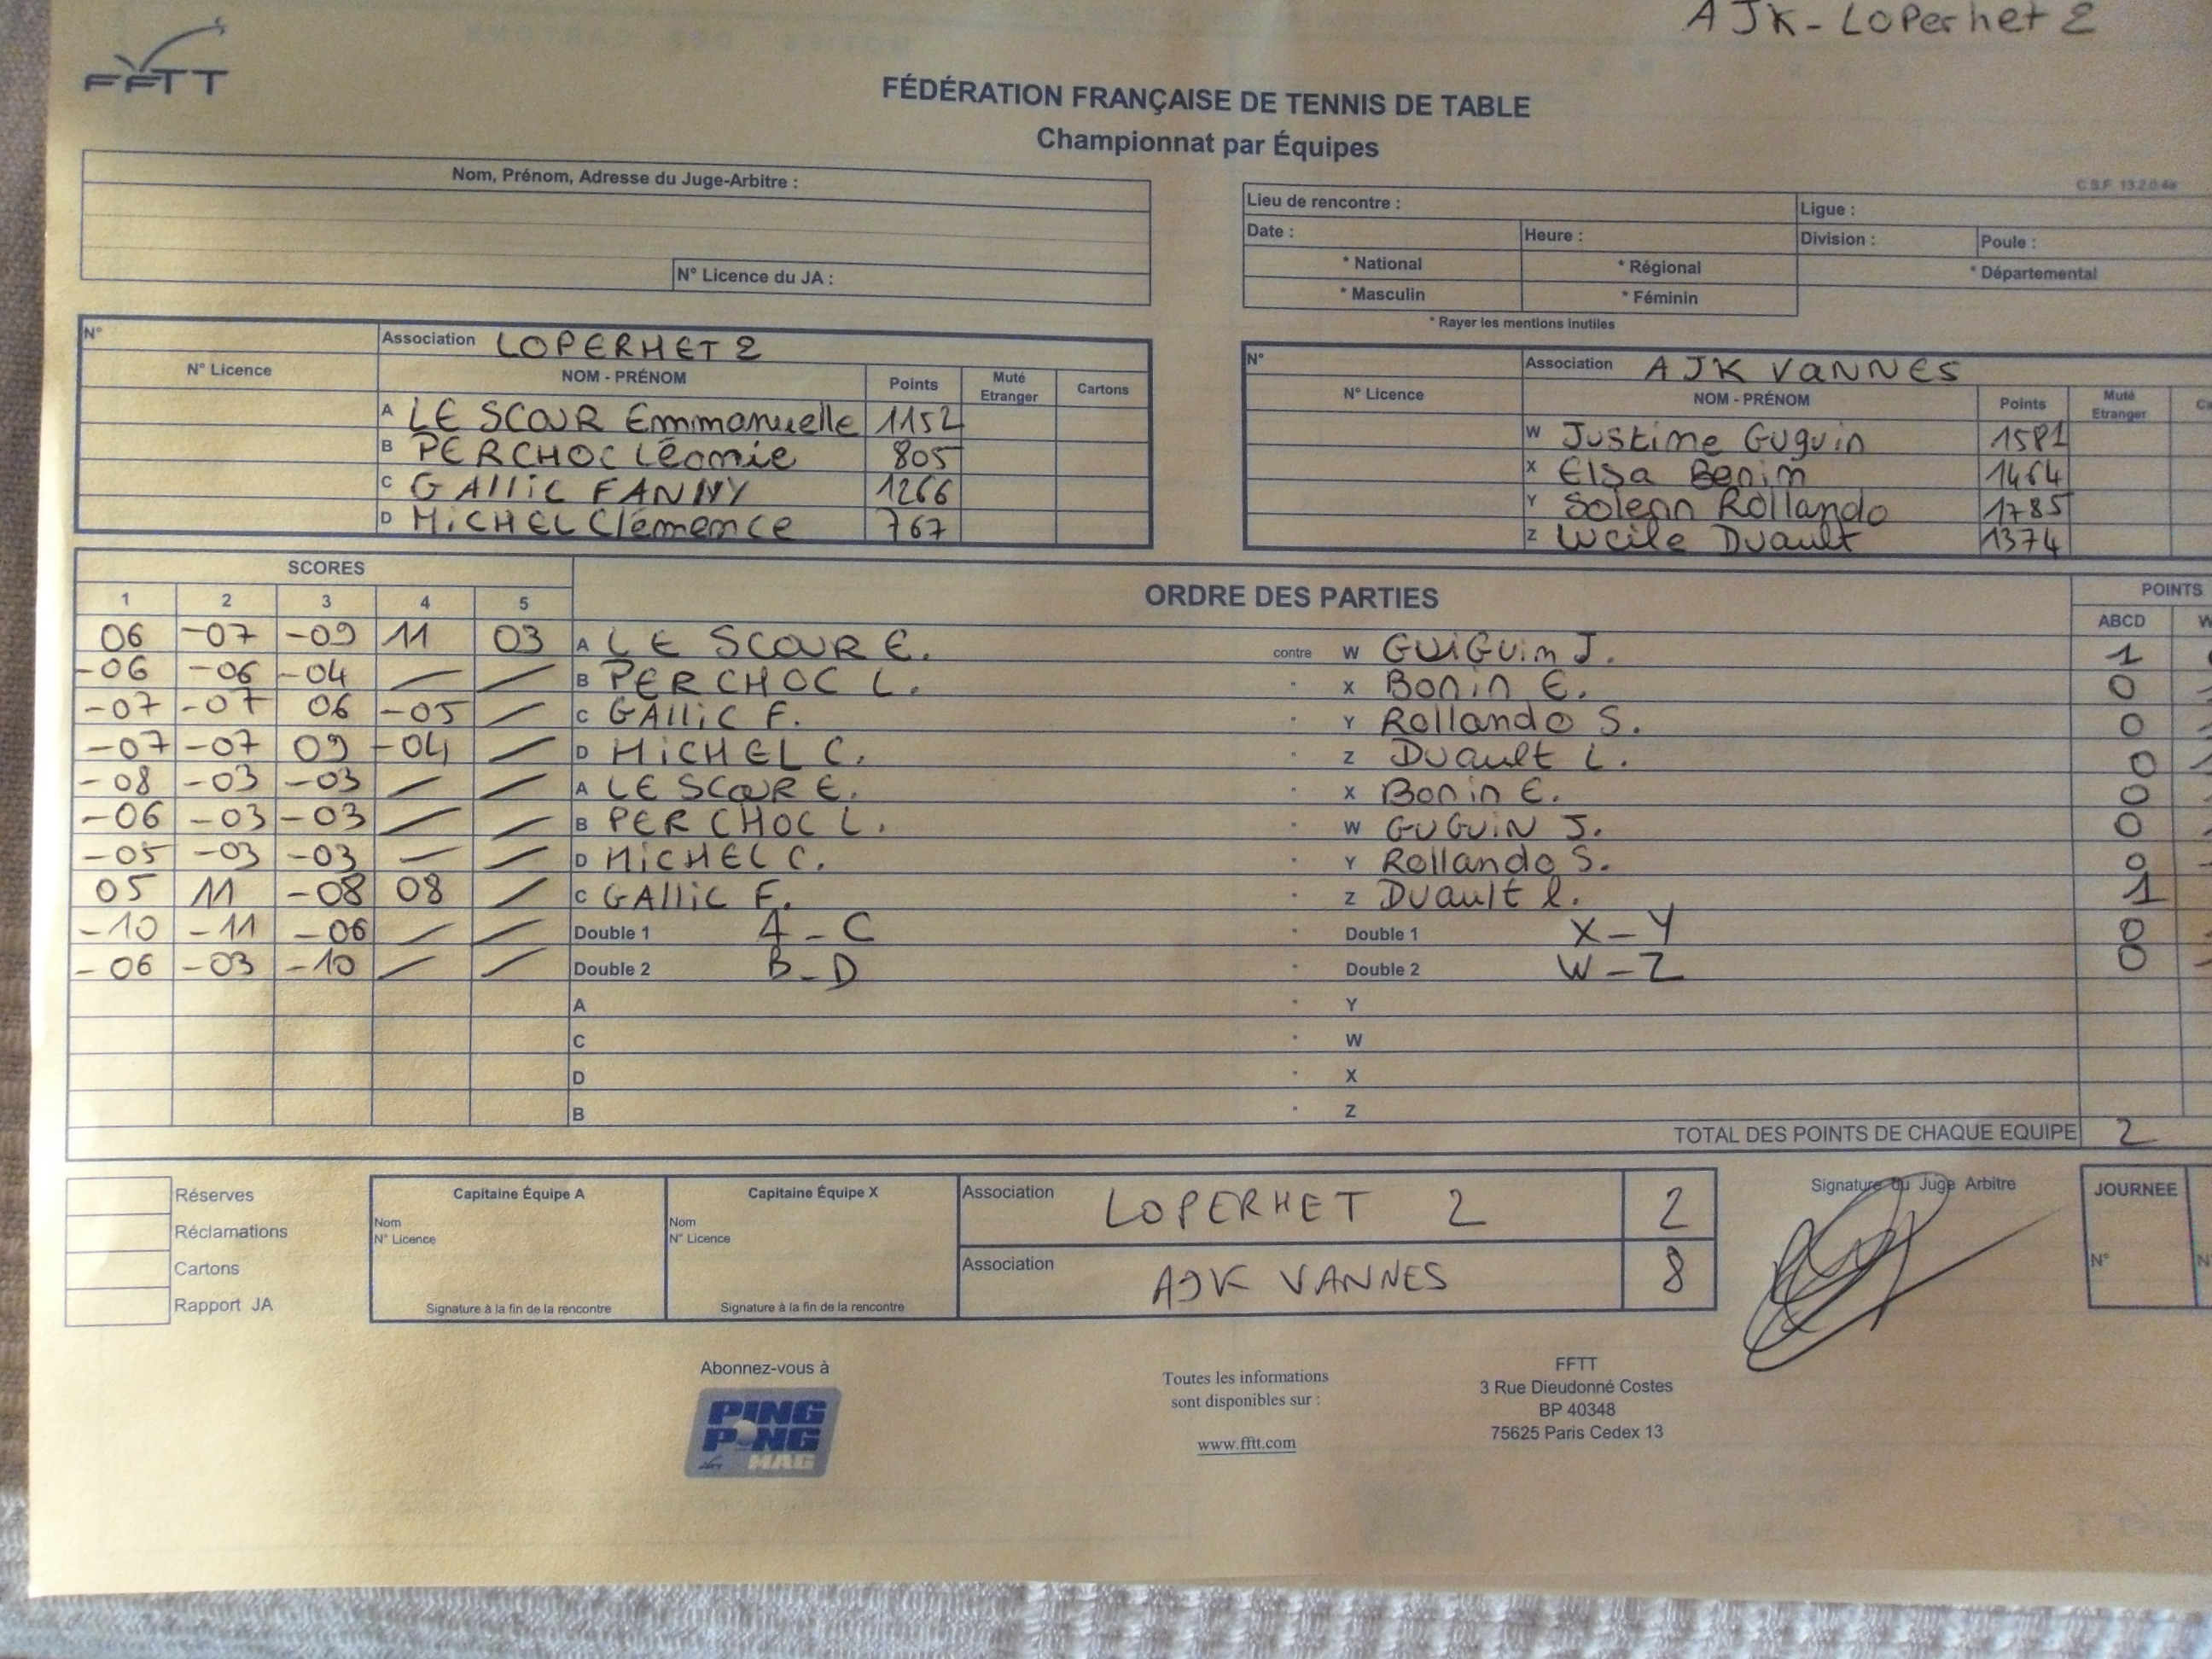 AJK - LOPerhet 2
FFTT
FÉDÉRATION FRANÇAISE DE TENNIS DE TABLE
Championnat par Équipes
C.S.F. 13.2.0.4a
Nom, Prénom, Adresse du Juge-Arbitre :
N° Licence du JA :
Lieu de rencontre : Ligue :
Date : Heure : Division : Poule :
* National * Régional * Départemental
* Masculin * Féminin
* Rayer les mentions inutiles
N° Association LOPERHET 2
N° Licence NOM - PRÉNOM Points Muté Etranger Cartons
A LE SCOUR Emmanuelle 1152
B PERCHOC Léonie 805
C GAlliC FANNY 1266
D MiCHEL Clémence 767
N° Association AJK VANNES
N° Licence NOM - PRÉNOM Points Muté Etranger
W Justine Guguin 1581
X Elsa Bonin 1464
Y Solenn Rollando 1785
Z Lucile Duault 1374
SCORES ORDRE DES PARTIES POINTS
1 2 3 4 5 ABCD W
06 -07 -09 11 03 A LE SCOUR E. contre W GUiGuin J. 1
-06 -06 -04 — — B PERCHOC L. " X Bonin E. 0
-07 -07 06 -05 — C GAlliC F. " Y Rollando S. 0
-07 -07 09 -04 — D MiCHEL C. " Z Duault L. 0
-08 -03 -03 — — A LE SCOUR E. " X Bonin E. 0
-06 -03 -03 — — B PERCHOC L. " W GUGUiN J. 0
-05 -03 -03 — — D MiCHEL C. " Y Rollando S. 0
05 11 -08 08 — C GAlliC F. " Z Duault l. 1
-10 -11 -06 — — Double 1 A - C " Double 1 X - Y 0
-06 -03 -10 — — Double 2 B - D " Double 2 W - Z 0
A " Y
C " W
D " X
B " Z
TOTAL DES POINTS DE CHAQUE EQUIPE 2
Réserves
Réclamations
Cartons
Rapport JA
Capitaine Équipe A
Nom
N° Licence
Signature à la fin de la rencontre
Capitaine Équipe X
Nom
N° Licence
Signature à la fin de la rencontre
Association LOPERHET 2 2
Association AJK VANNES 8
Signature du Juge Arbitre
JOURNEE
N°
Abonnez-vous à
PING PONG MAG
Toutes les informations
sont disponibles sur :
www.fftt.com
FFTT
3 Rue Dieudonné Costes
BP 40348
75625 Paris Cedex 13